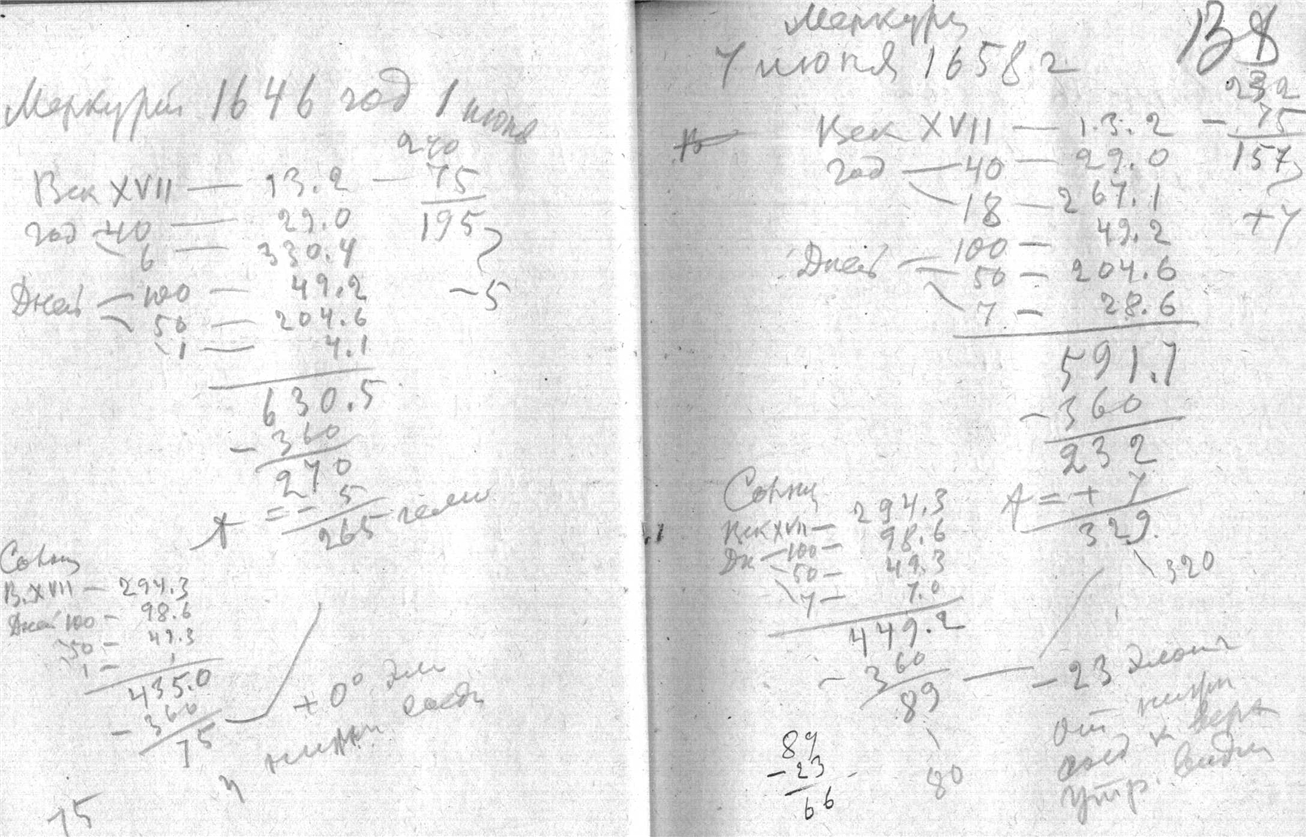 Меркурий 1646 год 1 июня
270
Век XVII — 13.2 — 75
195
год 40 — 29.0
6 — 330.4
Дней — 100 — 49.2
− 5
50 — 204.6
1 — 4.1
630.5
− 360
270
= − 5
265 гелио
Солнц
В. XVII — 294.3
Дней 100 — 98.6
50 — 49.3
1 — 1
435.0
− 360
75
+ 0° эл
нижн соед
75
Меркурий
7 июня 1658 г
В 8
232
− 75
157
Век XVII — 13.2
год — 40 — 29.0
18 — 267.1
+ 7
Дней — 100 — 49.2
50 — 204.6
7 — 28.6
591.7
− 360
232
= + 7
329.
320
Солнц
Век XVII — 294.3
Дн — 100 — 98.6
50 — 49.3
7 — 7.0
449.2
− 360
89
− 23 элонг
от нижн
соед к верх
утр. видим
80
89
− 23
66